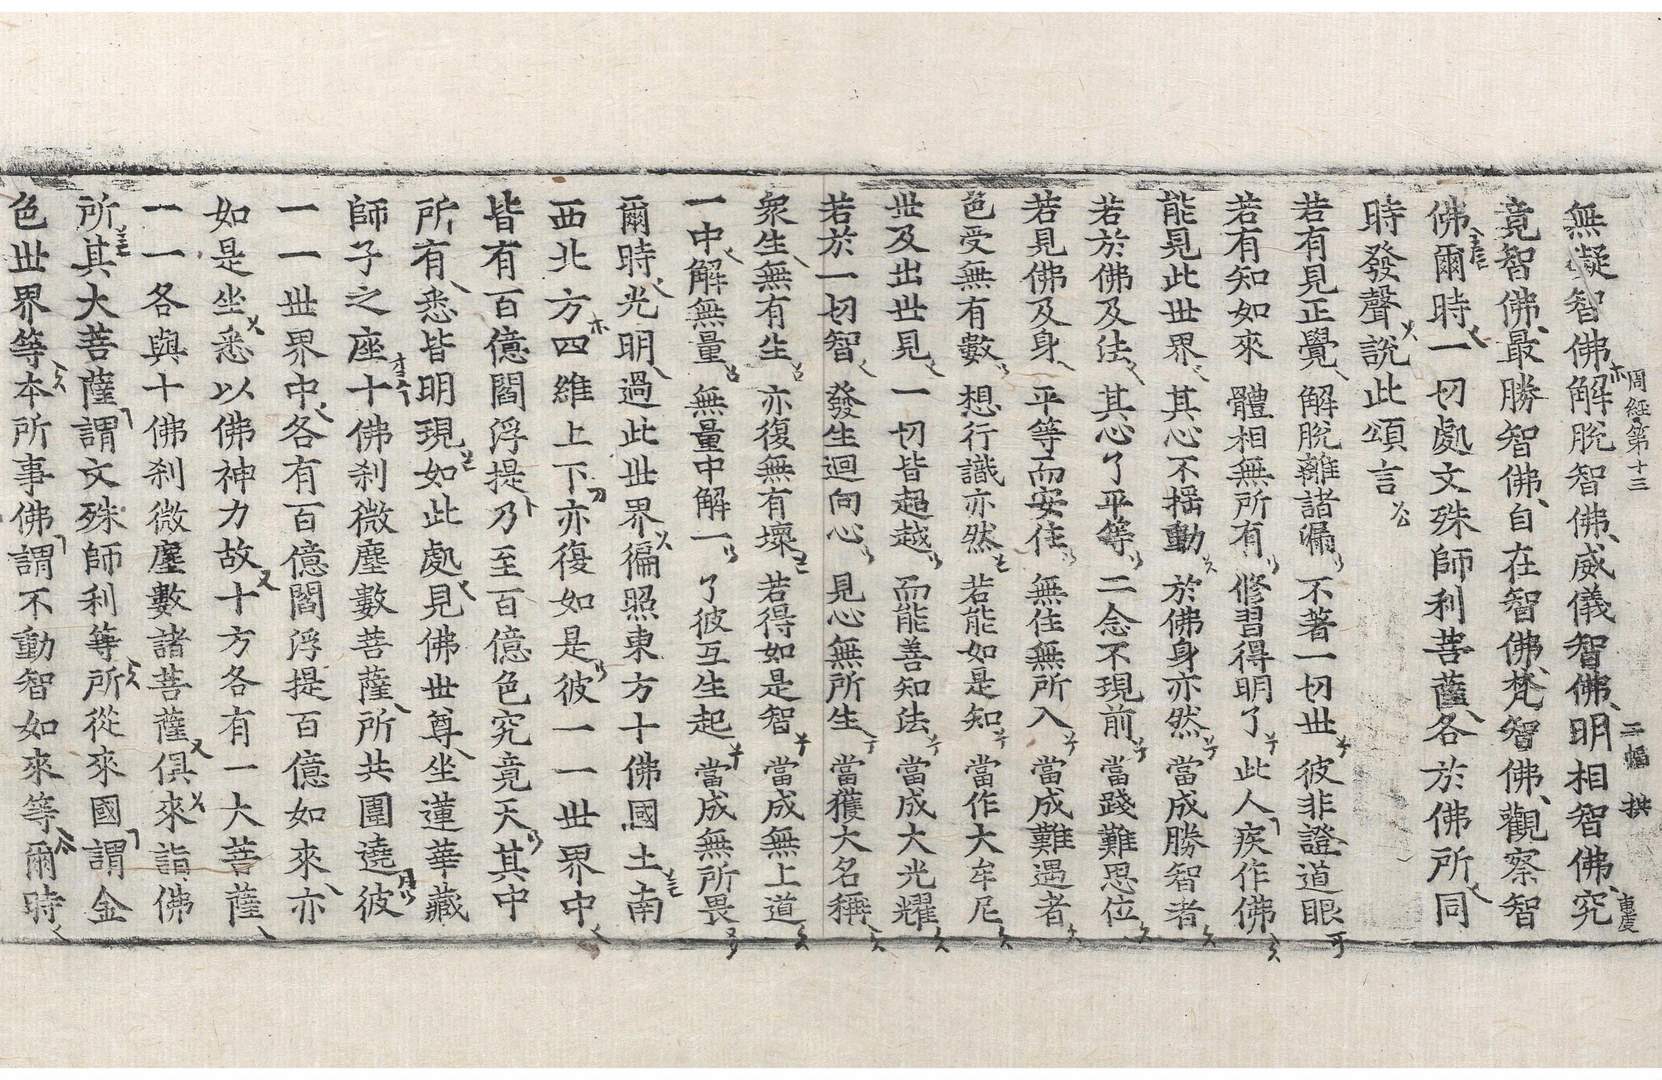 無礙智佛解脫智佛威儀智佛明相智佛究
周經第十三
二幅
竟智佛最勝智佛自在智佛梵智佛觀察智
佛爾時一切處文殊師利菩薩各於佛所同
時發聲說此頌言
若有見正覺 解脫離諸漏 不著一切世 彼非證道眼
若有知如來 體相無所有 修習得明了 此人疾作佛
能見此世界 其心不揺動 於佛身亦然 當成勝智者
若於佛及法 其心了平等 二念不現前 當踐難思位
若見佛及身 平等而安住 無住無所入 當成難遇者
色受無有數 想行識亦然 若能如是知 當作大牟尼
世及出世見 一切皆超越 而能善知法 當成大光耀
若於一切智 發生迴向心 見心無所生 當獲大名稱
衆生無有生 亦復無有壞 若得如是智 當成無上道
一中解無量 無量中解一 了彼互生起 當成無所畏
爾時光明過此世界徧照東方十佛國土南
西北方四維上下亦復如是彼一一世界中
皆有百億閻浮提乃至百億色究竟天其中
所有悉皆明現如此處見佛世尊坐蓮華藏
師子之座十佛刹微塵數菩薩所共圍遶彼
一一世界中各有百億閻浮提百億如來亦
如是坐悉以佛神力故十方各有一大菩薩
一一各與十佛刹微塵數諸菩薩俱來詣佛
所其大菩薩謂文殊師利等所從來國謂金
色世界等本所事佛謂不動智如來等爾時